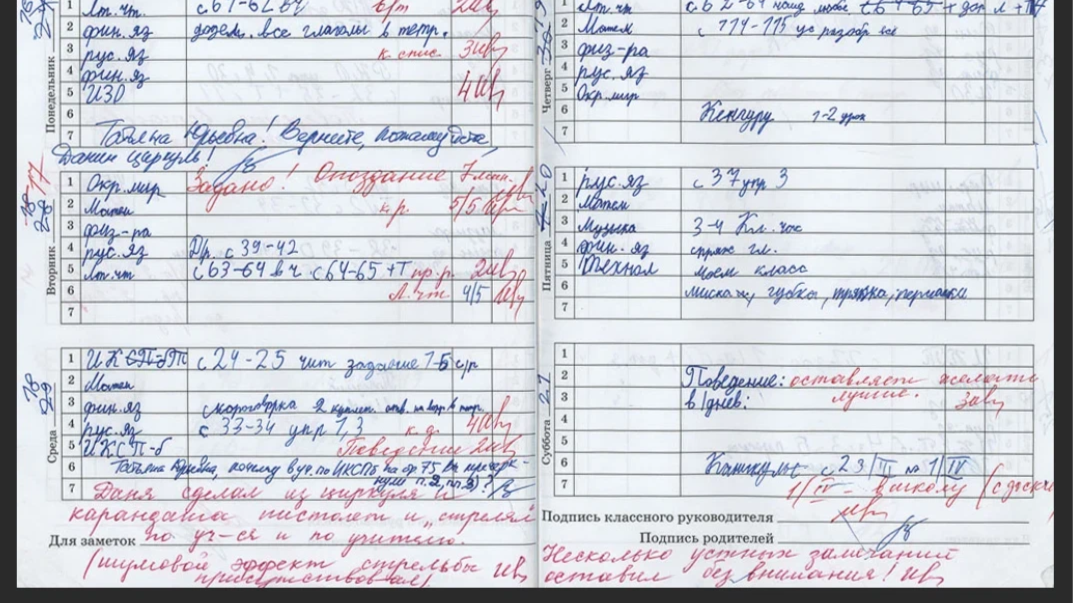 Понедельник
1 Лит.чт. с 61-62 вч б/т 2
2 фин.яз додел. все глаголы в тетр.
3 рус.яз к спис. 3
4 фин.яз
5 ИЗО 4
6
7 Татьяна Юрьевна! Верните, пожалуйста,
Данин циркуль!
Вторник 17
1 Окр.мир Задано! Опоздание 7 мин.
2 Матем к.р. 5/5
3 физ-ра
4 рус.яз Др. с 39-42
5 Лит.чт с 63-64 вч с 64-65 + Т пр.р. 2
6 Л.чт 4/5
7
Среда 18
1 ИКСПбП с 24-25 чит задание 1-5 с/р
2 Матем
3 фин.яз скороговорка
4 рус.яз с 33-34 упр 1,3 к.д. 4
5 ИКСП-б Поведение 2
6 Татьяна Юрьевна, почему в уч. по ИКСПб на стр 75 Вы зачерк-
нули п.2, пл.3)?
7 Даня сделал из циркуля и
карандаша пистолет и "стрелял"
Для заметок по уч-ся и по учителю.
(шумовой эффект стрельбы
присутствовал)
Четверг 19
1 Лит.чт с 62-64
2 Матем с 114-115 ус разобр все
3 физ-ра
4 рус.яз
5 Окр.мир
6 Кенгуру 1-2 урок
7
Пятница 20
1 рус.яз с 37 упр 3
2 Матем
3 Музыка 3-4 Кл. час
4 фин.яз спряж гл.
5 Технол моем класс
6 миска, губка, тряпка, перчатки
7
Суббота 21
1
2 Поведение: оставляет желать
3 в/днев: лучшего. 3
4
5
6 Каникулы с 23/III по 1/IV
7 1/IV - в школу
Подпись классного руководителя
Подпись родителей
Несколько устных замечаний
оставил без внимания!